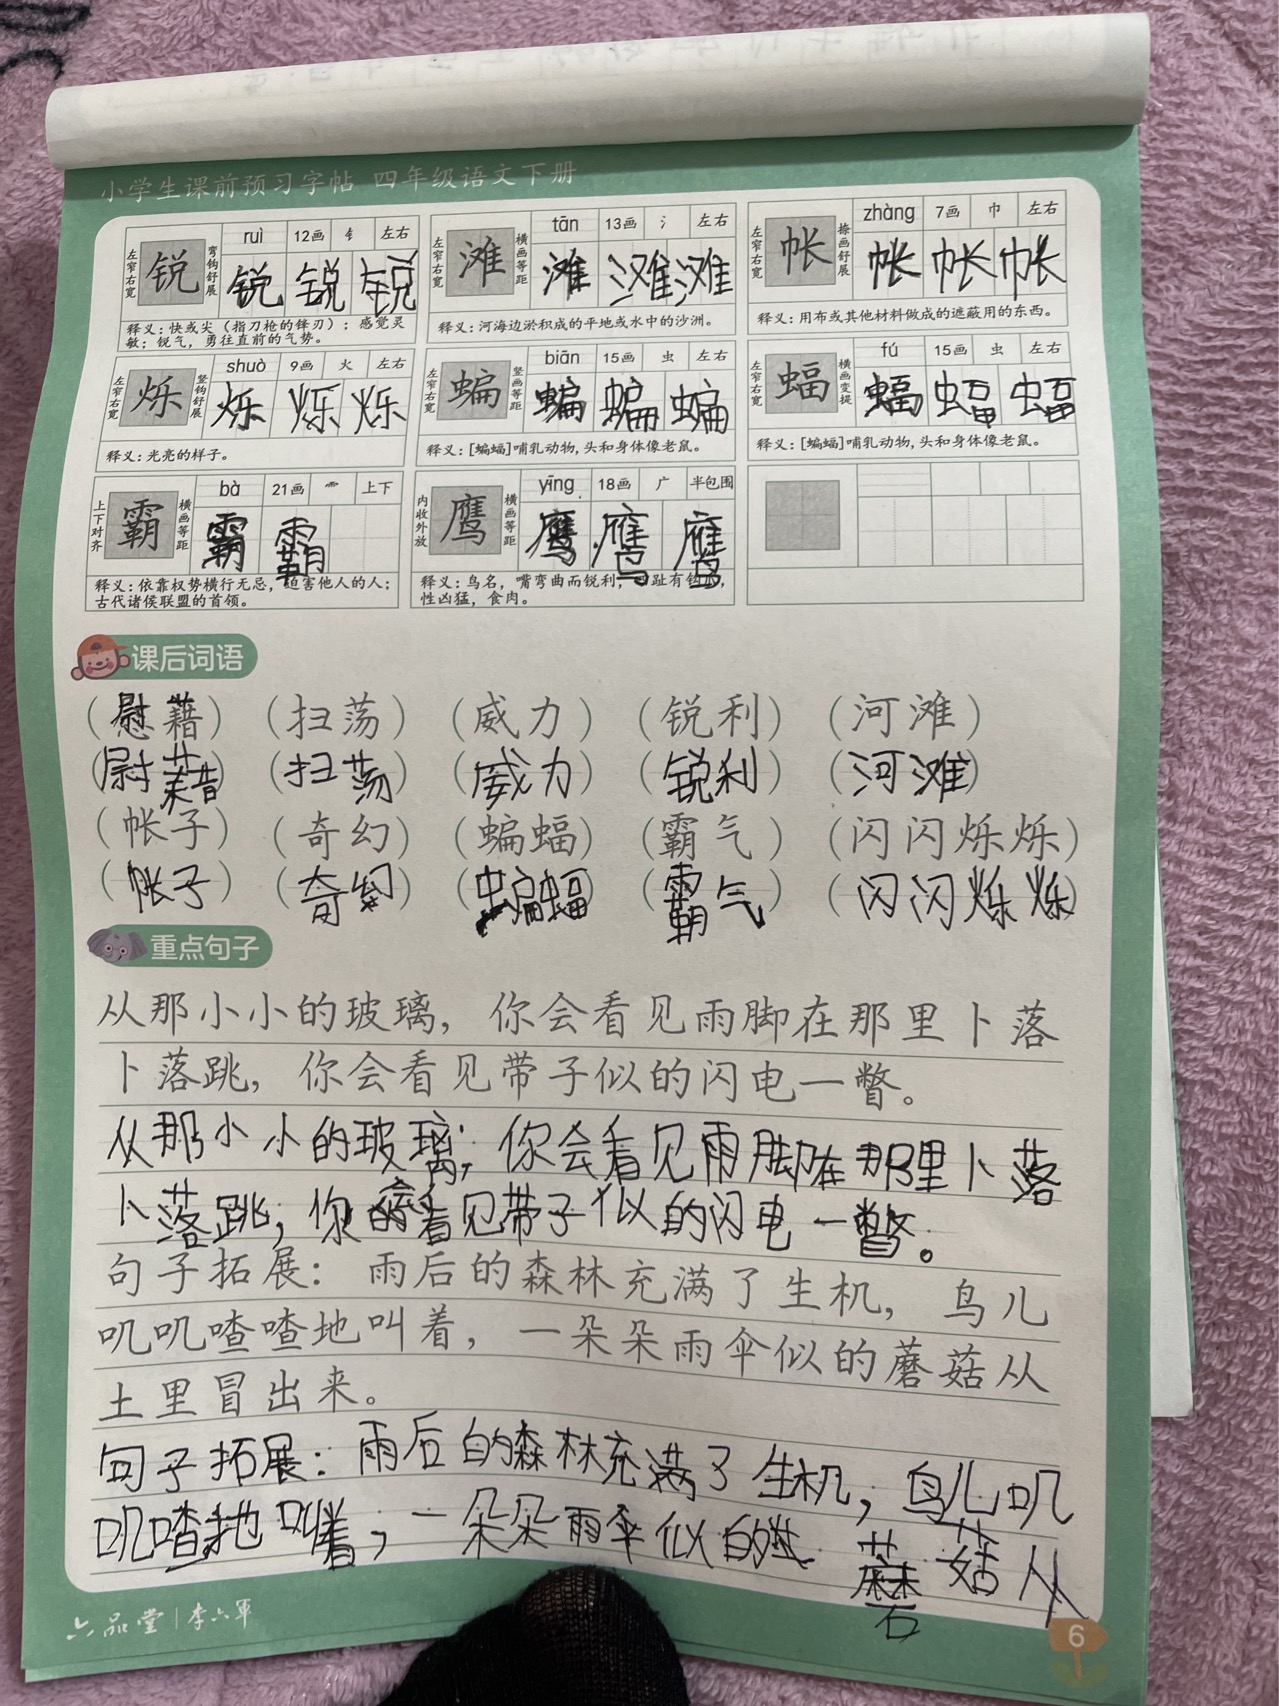 小学生课前预习字帖 四年级语文下册
左窄右宽 锐 弯钩舒展 ruì 12画 钅 左右
锐 锐 锐
释义：快或尖（指刀枪的锋刃）；感觉灵
敏；锐气，勇往直前的气势。
左窄右宽 滩 横画等距 tān 13画 氵 左右
滩 滩 滩
释义：河海边淤积成的平地或水中的沙洲。
左窄右宽 帐 捺画舒展 zhàng 7画 巾 左右
帐 帐 帐
释义：用布或其他材料做成的遮蔽用的东西。
左窄右宽 烁 竖钩舒展 shuò 9画 火 左右
烁 烁 烁
释义：光亮的样子。
左窄右宽 蝙 竖画等距 biān 15画 虫 左右
蝙 蝙 蝙
释义：[蝙蝠]哺乳动物，头和身体像老鼠。
左窄右宽 蝠 横画变提 fú 15画 虫 左右
蝠 蝠 蝠
释义：[蝙蝠]哺乳动物，头和身体像老鼠。
上下对齐 霸 横画等距 bà 21画 ⻗ 上下
霸 霸
释义：依靠权势横行无忌，迫害他人的人；
古代诸侯联盟的首领。
内收外放 鹰 横画等距 yīng 18画 广 半包围
鹰 鹰 鹰
释义：鸟名，嘴弯曲而锐利，四趾有钩爪，
性凶猛，食肉。
课后词语
（慰藉）（扫荡）（威力）（锐利）（河滩）
（尉藉）（扫荡）（威力）（锐利）（河滩）
（帐子）（奇幻）（蝙蝠）（霸气）（闪闪烁烁）
（帐子）（奇幻）（蝙蝠）（霸气）（闪闪烁烁）
重点句子
从那小小的玻璃，你会看见雨脚在那里卜落
卜落跳，你会看见带子似的闪电一瞥。
从那小小的玻璃，你会看见雨脚在那里卜落
卜落跳，你会看见带子似的闪电一瞥。
句子拓展：雨后的森林充满了生机，鸟儿
叽叽喳喳地叫着，一朵朵雨伞似的蘑菇从
土里冒出来。
句子拓展：雨后的森林充满了生机，鸟儿叽
叽喳地叫着，一朵朵雨伞似的 蘑菇从
六品堂 | 李六军
6